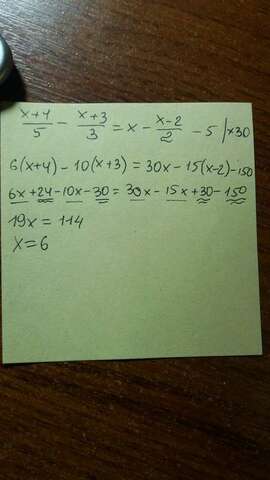 x+4/5 - x+3/3 = x - x-2/2 - 5 |x30
6(x+4) - 10(x+3) = 30x - 15(x-2) - 150
6x+24-10x-30 = 30x - 15x+30-150
19x = 114
x=6